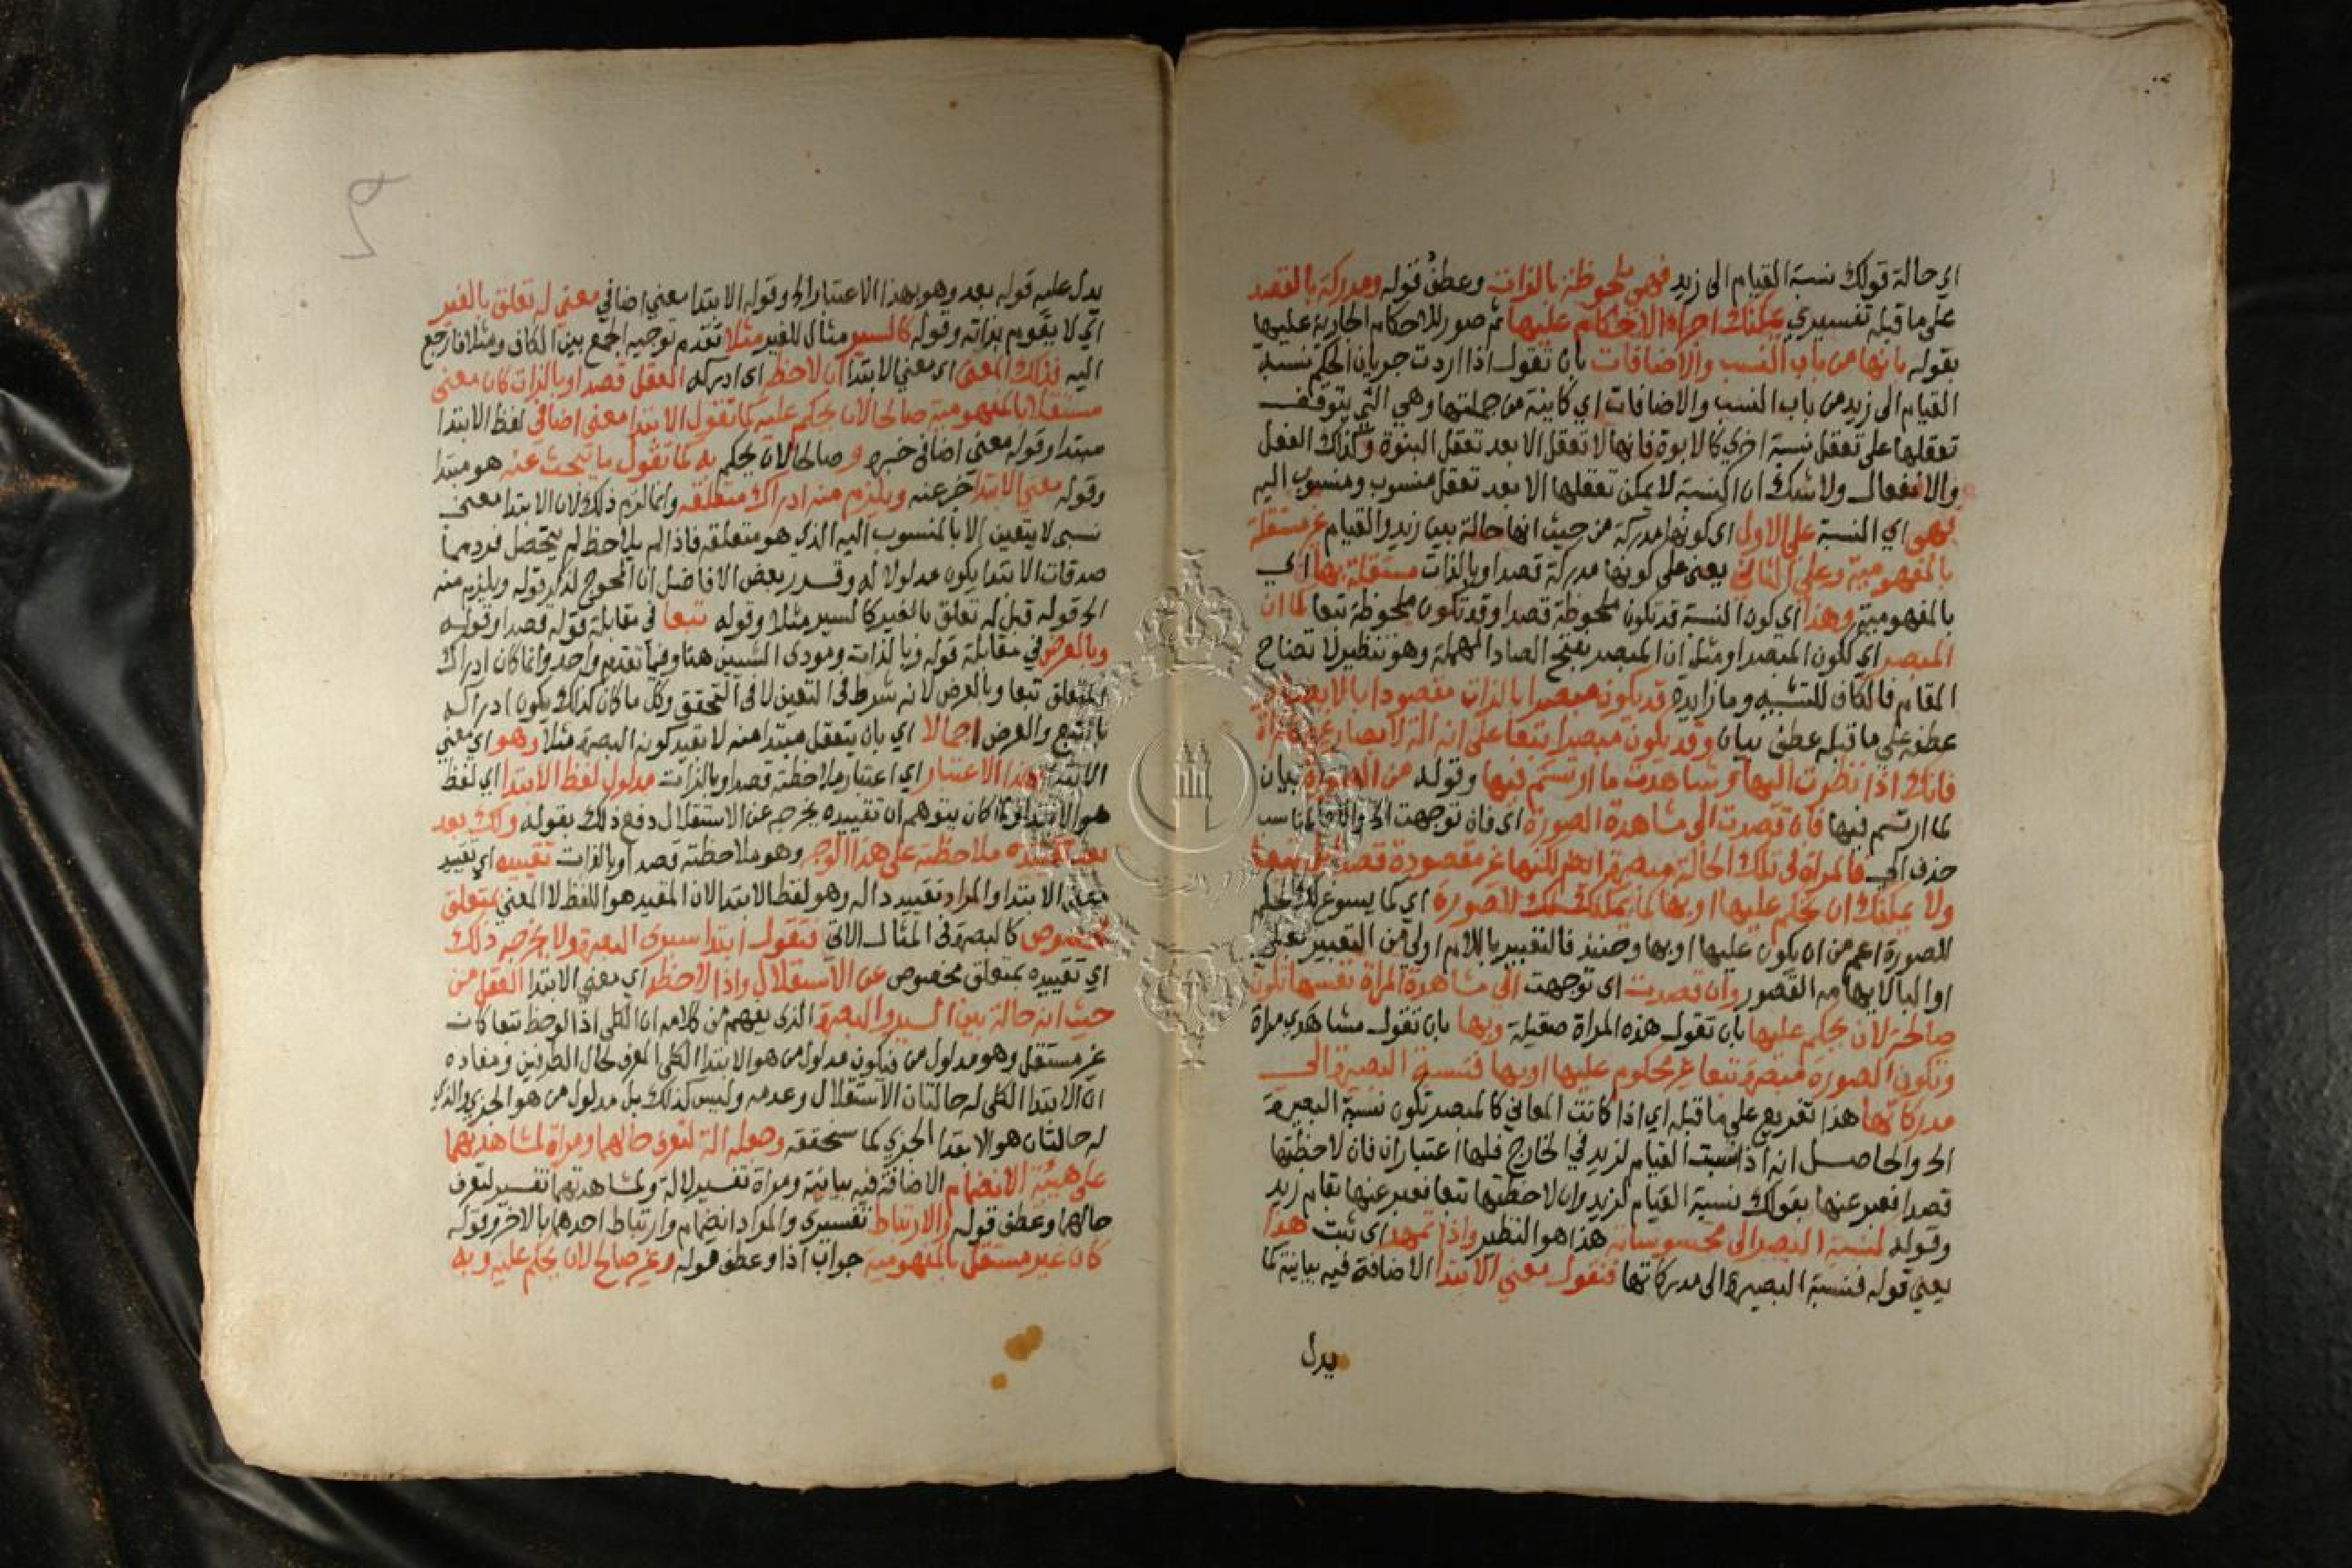 اي حالة قولك نسبة القيام الى زيد فهي ملحوظة بالذات وعطف قوله ومدركة بالقصد
على ما قبله تفسيري يمكنك اجراء الاحكام عليها ثم صور للاحكام الجارية عليها
بقوله بانها من باب النسب والاضافات بان تقول اذا اردت جريان الحكم نسبة
القيام الى زيد من باب النسب والاضافات اي كاينة من جملتها وهي التي يتوقف
تعقلها على تعقل نسبة اخري كالابوة فانها لا تعقل الا بعد تعقل البنوة وكذلك الفعل
والانفعال ولا شك ان النسبة لا يمكن تعقلها الا بعد تعقل منسوب ومنسوب اليه
فهي اي النسبة على الاول اي كونها مدركة من حيث انها حالة بين زيد والقيام غير مستقلة
بالمفهومية وعلى الثاني يعنى على كونها مدركة قصدا وبالذات مستقلة بها اي
بالمفهومية وهذا اي كون النسبة قد تكون ملحوظة قصدا وقد تكون ملحوظة تبعا كما ان
المبصر اي ككون المبصر او مثل ان المبصر بفتح الصاد المهملة وهو تنظير لا تضاح
المقام فالكاف للتشبيه وما زايدة قد يكون مبصرا بالذات مقصودا بالابصار
عطفه علي ما قبله عطف بيان وقد يكون مبصرا تبعا على انه الة لابصار غيره كالمراة
فانك اذا نظرت اليها وشاهدت ما ارتسم فيها وقوله من الصورة بيان
لما ارتسم فيها فان قصدت الى مشاهدة الصورة اي فان توجهت الى والا فالمناسب
حذف الى فالمراة في تلك الحالة مبصرة ايضا لكنها غير مقصودة قصدا بل تبعا
ولا يمكنك ان تحكم عليها او بها كما يمكنك ذلك للصورة اي كما يسوغ لك الحكم
للصورة اعم من ان يكون عليها او بها وحينئذ فالتعبير باللام اولى من التعبير بعلى
او البا لايهامه القصور وان قصدت اى توجهت الى مشاهدة المراة نفسها تكون
صالحة لان يحكم عليها بان تقول هذه المراة صقيلة وبها بان تقول مشاهدي مراة
وتكون الصورة مبصرة تبعا غير محكوم عليها او بها فنسبة البصيرة الى
مدركاتها هذا تفريع علي ما قبله اي اذا كانت المعاني كالمبصر تكون نسبة البصيرة
الى والحاصل انه اذا نسبت القيام لزيد في الخارج فلها اعتباران فان لاحظتها
قصدا فعبر عنها بقولك نسبة القيام لزيد وان لاحظتها تبعا فعبر عنها بقام زيد
وقوله لنسبة البصر الى محسوساته هذا هو النظير واذا تمهد اى ثبت هذا
يعني قوله فنسبة البصيرة الى مدركاتها فنقول معني الابتدا الاضافة فيه بيانية كما
يدل
يدل عليه قوله بعد وهو بهذا الاعتبار الى وقوله الابتدا معني اضافي معني له تعلق بالغير
اي لا يقوم بذاته وقوله كالسير مثال للغير مثلا تقدم توجيه الجمع بين الكاف ومثلا فارجع
اليه فذلك المعنى اى معني الابتدا ان لاحظ اى ادركه العقل قصدا وبالذات كان معنى
مستقلا بالمفهومية صالحا لان يحكم عليه كما تقول الابتدا معنى اضافي لفظ الابتدا
مبتدا وقوله معنى اضافي خبره وصالحا لان يحكم به كما تقول ما يبحث عنه هو مبتدا
وقوله معني الابتدا خبر عنه ويلزم منه ادراك متعلقه وانما لزم ذلك لان الابتدا معنى
نسبى لا يتعين الا بالمنسوب اليه الذي هو متعلقه فاذا لم يلاحظ لم يتحصل فرد مما
صدقات الابتدا يكون مدلولا له وقدر بعض الافاضل ان المحوج لذكر قوله ويلزم منه
الى قوله قبل له تعلق بالغير كالسير مثلا وقوله تبعا في مقابلة قوله قصدا وقوله
وبالعرض في مقابلة قوله وبالذات ومودى الشيين هنا وفيما تقدم واحد وانما كان ادراك
المتعلق تبعا وبالعرض لانه شرط في التعين لا في التحقق وكل ما كان كذلك يكون ادراكه
بالتبع والعرض اجمالا اي بان يتعقل مبتدا منه لا بقيد كونه البصرة مثلا وهو اي معني
الابتدا بهذا الاعتبار اي اعتبار ملاحظته قصدا وبالذات مدلول لفظ الابتدا اي لفظ
هو الابتدا ولما كان يتوهم ان تقييده يخرجه عن الاستقلال دفع ذلك بقوله ولك بعد
ملاحظته على هذا الوجه وهو ملاحظته قصدا وبالذات تقييده اي تقييد
معنى الابتدا والمراد تقييد داله وهو لفظ الابتدا لان المقيد هو اللفظ لا المعني بمتعلق
مخصوص كالبصرة في المثال الاتى فتقول ابتدا سيرى البصرة ولا يخرجه ذلك
اي تقييده بمتعلق مخصوص عن الاستقلال واذا لاحظه اي معني الابتدا العقل من
حيث انه حالة بين السير والبصرة الذى يفهم من كلامه ان الكلى اذا لوحظ تبعا كان
غير مستقل وهو مدلول من فيكون مدلول من هو الابتدا الكلى المعرف لحال الطرفين ومفاده
ان الابتدا الكلى له حالتان الاستقلال وعدمه وليس كذلك بل مدلول من هو الجزي والذي
له حالتان هو الابتدا الجزي كما سنحققه وجعله الة لتعرف حالهما ومراة لمشاهدتهما
على هيئة الانضمام الاضافة فيه بيانية ومراة تفسير لالة ولمشاهدتهما تفسير لتعرف
حالهما وعطف قوله والارتباط تفسيري والمراد انضمام وارتباط احدهما بالاخر وقوله
كان غير مستقل بالمفهومية جواب اذا وعطف قوله وغير صالح لان يحكم عليه وبه